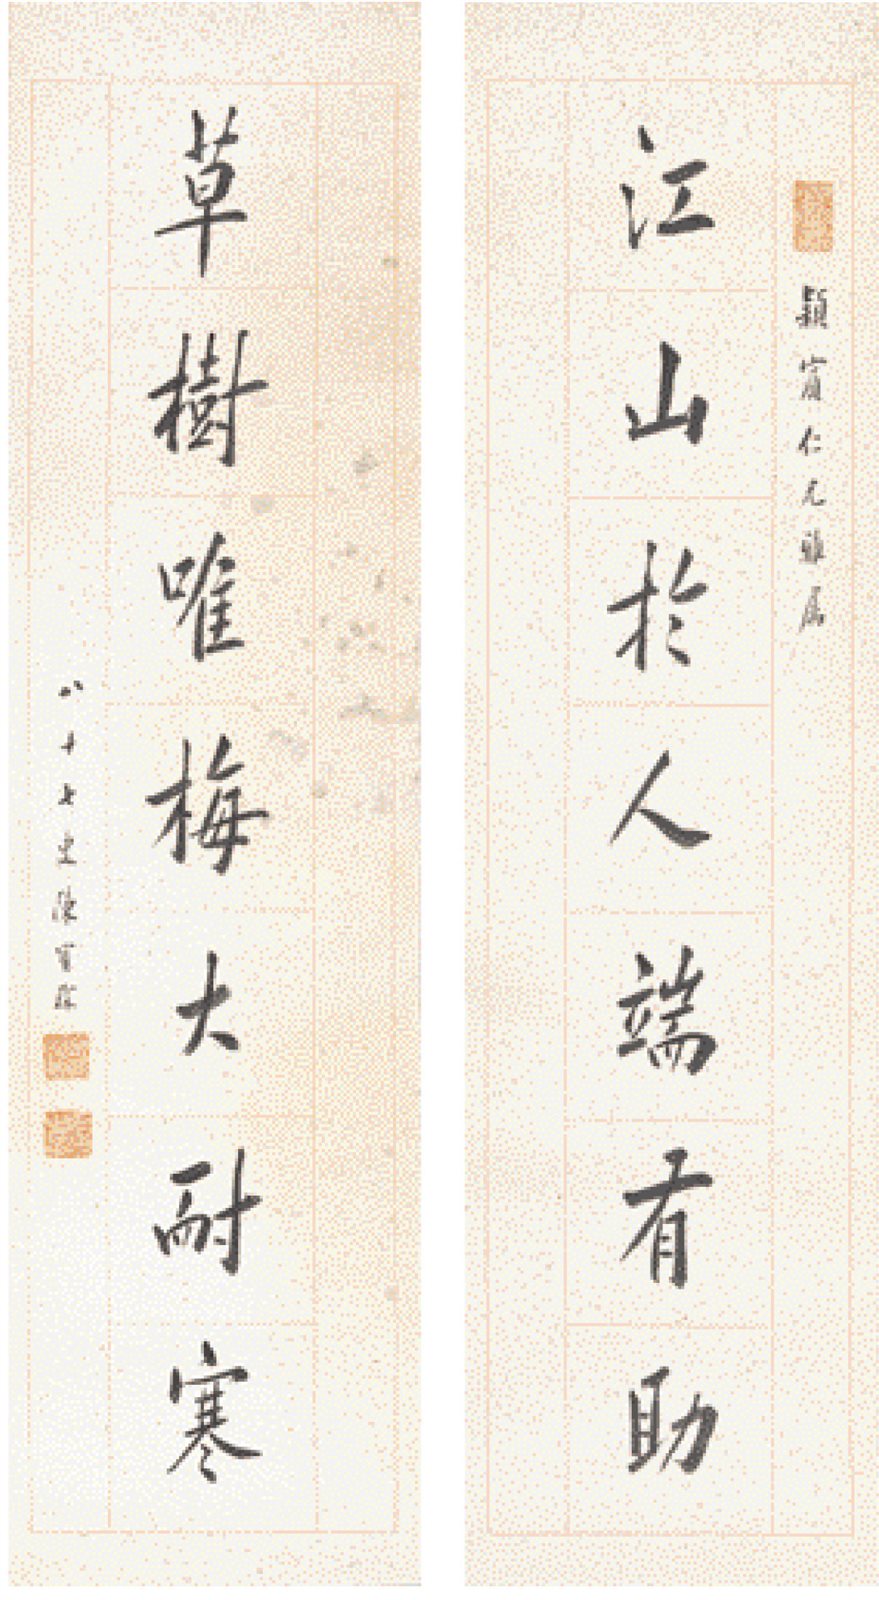 穎賓仁兄雅属
江山於人端有助
草樹唯梅大耐寒
八十七叟陳寶琛